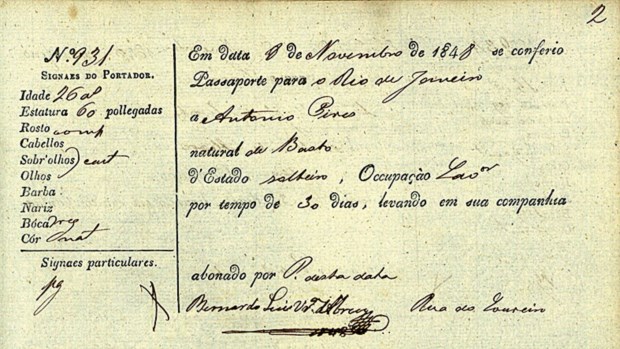 2
Nº 931
SIGNAES DO PORTADOR.
Idade 26 a
Estatura 60 pollegadas
Rosto comp
Cabellos
Sobr'olhos cast
Olhos
Barba
Nariz
Bôca reg
Côr nat
Signaes particulares.
pg
Em data 8 de Novembro de 1848 se conferio
Passaporte para o Rio de Janeiro
a Antonio Pires
natural de Basto
d'Estado solteiro, Occupação Lavor
por tempo de 30 dias, levando em sua companhia
abonado por P. desta data
Bernardo Luis d'Abreu Rua do Loureiro